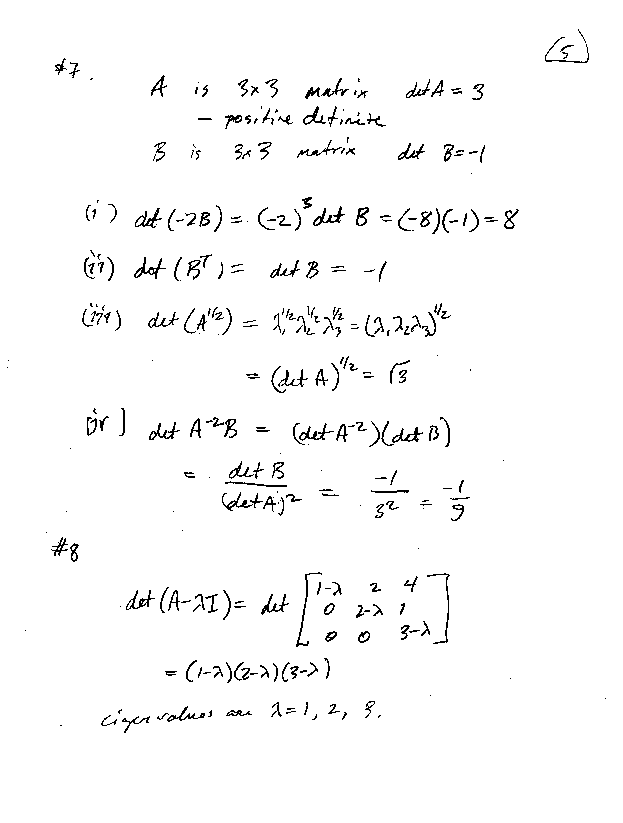 (5)
#7.
A is 3x3 matrix det A = 3
— positive definite
B is 3x3 matrix det B = -1
(i) det (-2B) = (-2)³ det B = (-8)(-1) = 8
(ii) det (Bᵀ) = det B = -1
(iii) det (A^{1/2}) = λ₁^{1/2} λ₂^{1/2} λ₃^{1/2} = (λ₁ λ₂ λ₃)^{1/2}
= (det A)^{1/2} = √3
(iv) det A⁻²B = (det A⁻²)(det B)
= det B / (det A)² = -1 / 3² = -1 / 9
#8
det (A-λI) = det [1-λ 2 4
0 2-λ 1
0 0 3-λ]
= (1-λ)(2-λ)(3-λ)
eigenvalues are λ = 1, 2, 3.